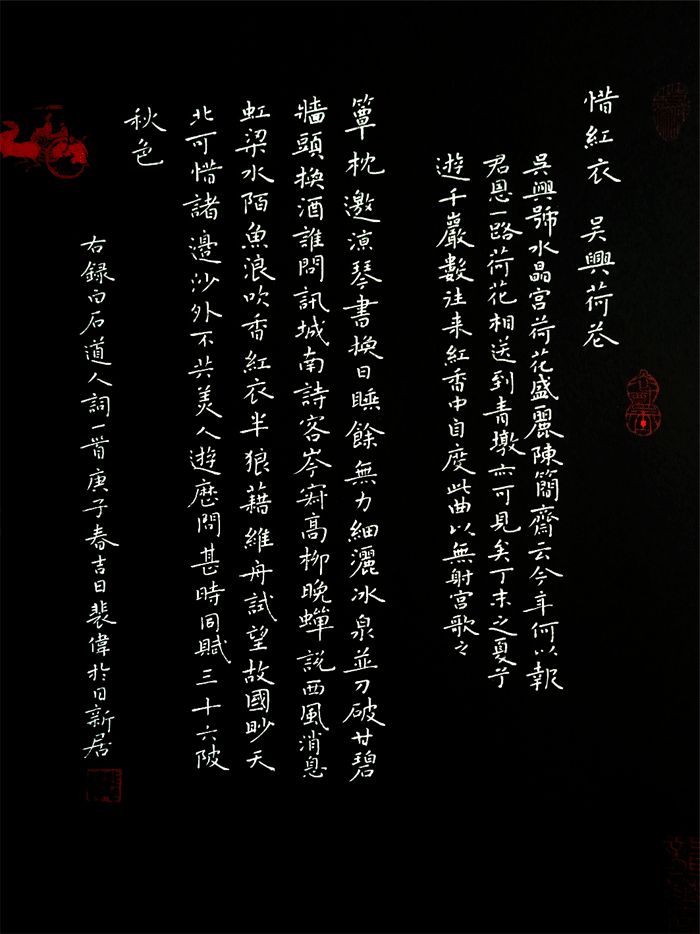 惜紅衣 吳興荷花
吳興號水晶宮荷花盛麗陳簡齋云今年何以報
君恩一路荷花相送到青墩亦可見矣丁未之夏予
遊千巖數往来紅香中自度此曲以無射宮歌之
簟枕邀涼琴書換日睡餘無力細灑冰泉並刀破甘碧
牆頭換酒誰問訊城南詩客岑寂高柳晚蟬說西風消息
虹梁水陌魚浪吹香紅衣半狼藉維舟試望故國眇天
北可惜諸邊沙外不共美人遊歷問甚時同賦三十六陂
秋色
右錄白石道人詞一首庚子春吉日裴偉於日新居